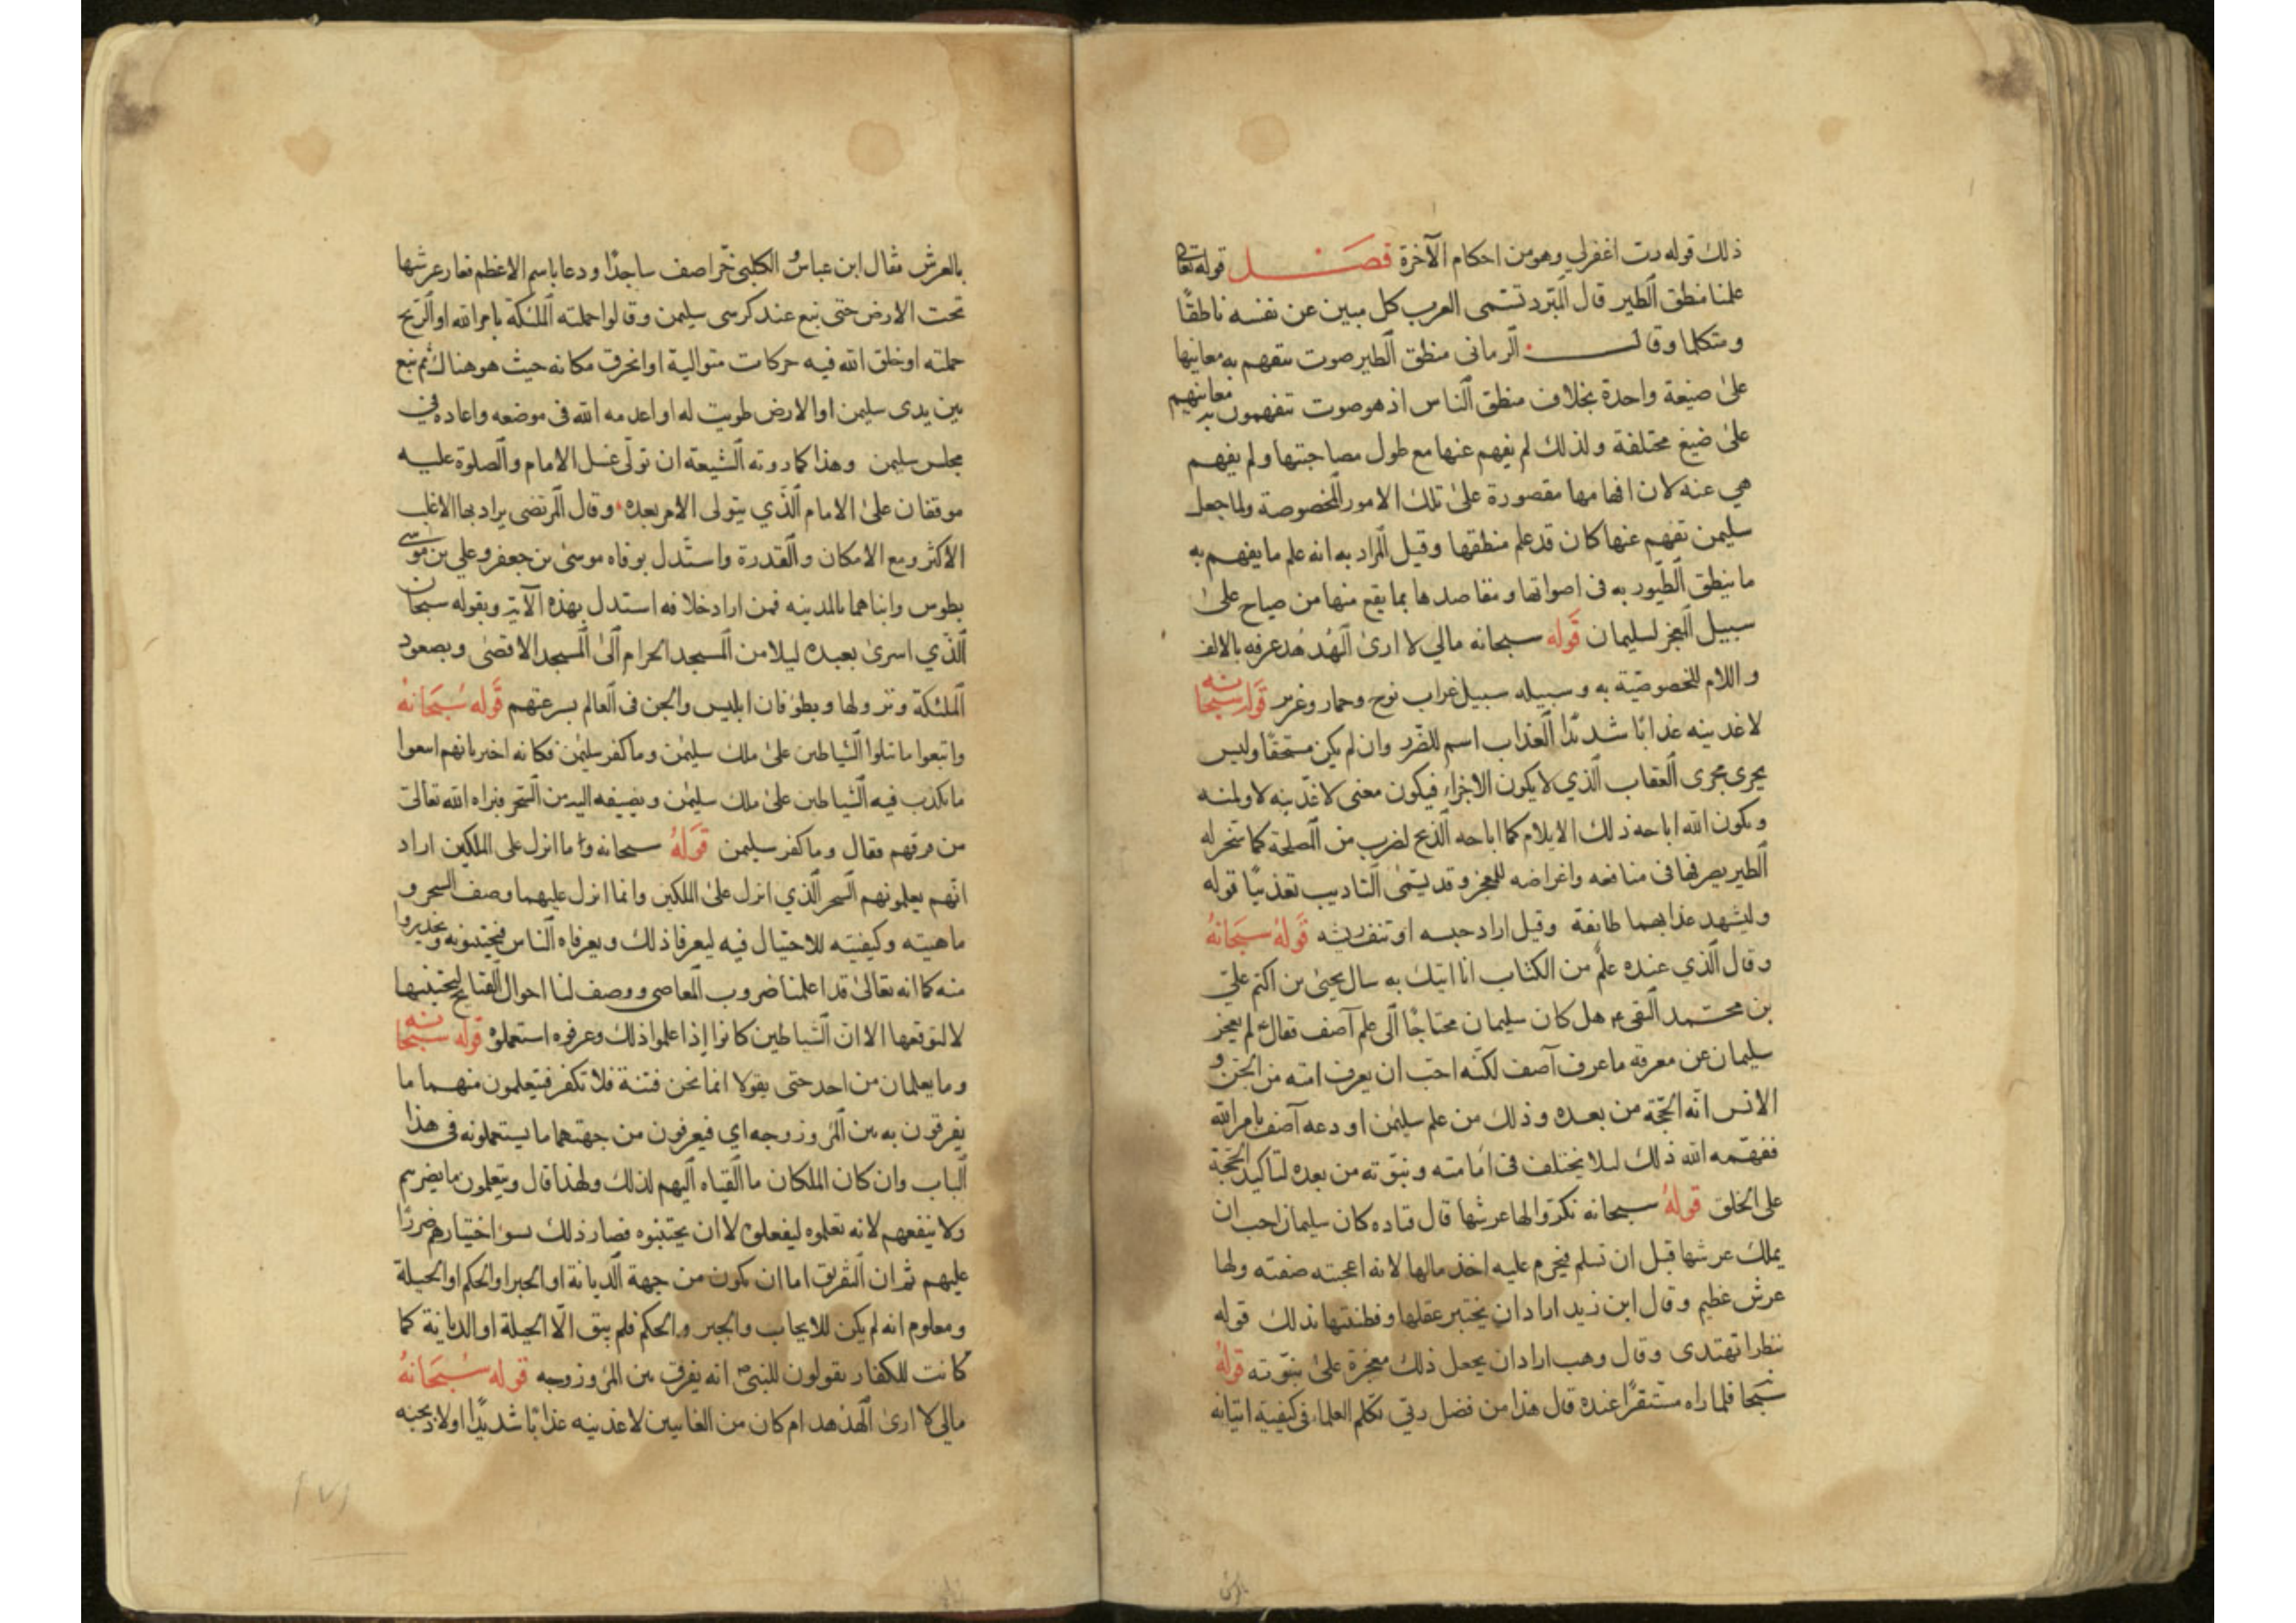 ذلك قوله رب اغفرلي وهو من احكام الآخرة فصل قوله تعالى
علمنا منطق الطير قال المبرد تسمى العرب كل مبين عن نفسه ناطقًا
ومتكلما وقال الرماني منطق الطير صوت تتفهم به معانيها
على صيغة واحدة بخلاف منطق الناس اذ هو صوت تتفهمون به معانيهم
على صيغ مختلفة ولذلك لم يفهم عنها مع طول مصاحبتها ولم يفهم
هي عنه لان افهامها مقصورة على تلك الامور المخصوصة ولما جعل
سليمن تفهم عنها كان قد علم منطقها وقيل المراد به انه علم ما يفهم به
ما ينطق الطيور به في اصواتها ومقاصدها بما يقع منها من صياح على
سبيل المعجز لسليمان قوله سبحانه مالي لا ارى الهدهد عرفه بالالف
واللام للخصوصية به وسبيله سبيل غراب نوح وحمار وعزير قوله سبحانه
لاعذبنه عذابًا شديدًا العذاب اسم للضرر وان لم يكن مستحقًا وليس
يجرى مجرى العقاب الذي لا يكون الاجزاء فيكون معنى لاعذبنه لاولمنه
ويكون الله اباحه ذلك الايلام كما اباحه الذبح لضرب من المصلحة كما سخر له
الطير يصرفها في منافعه واغراضه للمعجز وقد يسمى التاديب تعذيبًا قوله
وليشهد عذابهما طائفة وقيل اراد حبسه او تنف ريشه قوله سبحانه
وقال الذي عنده علم من الكتاب انا اتيك به سال يحيى بن اكثم علي
بن محمد النقي ع هل كان سليمان محتاجًا الى علم آصف فقال ع لم يعجز
سليمان عن معرفة ما عرف آصف لكنه احب ان يعرف امته من الجن و
الانس انه الحجة من بعده وذلك من علم سليمن اودعه آصف بامر الله
ففهمه الله ذلك لئلا يختلف في امامته ونبوته من بعده لتاكيد الحجة
على الخلق قوله سبحانه نكروا لها عرشها قال قتاده كان سليمان احب ان
يملك عرشها قبل ان تسلم فيحرم عليه اخذ مالها لانه اعجبته صفته ولها
عرش عظيم وقال ابن زيد اراد ان يختبر عقلها وفطنتها بذلك قوله
ننظر اتهتدى وقال وهب اراد ان يجعل ذلك معجزة على نبوته قوله
سبحا فلما راه مستقرًا عنده قال هذا من فضل ربي تكلم العلماء في كيفية اتيانه
بالعرش
بالعرش فقال ابن عباس والكلبي خر اصف ساجدًا ودعا باسم الاعظم فغار عرشها
تحت الارض حتى نبع عند كرسى سليمن وقالوا حملته الملئكة بامر الله او الريح
حملته او خلق الله فيه حركات متوالية او انخرق مكانه حيث هو هناك ثم نبع
بين يدى سليمن او الارض طويت له او اعدمه الله في موضعه واعاده في
مجلس سليمن وهذا كما روته الشيعة ان تولى غسل الامام والصلوة عليه
موقفان على الامام الذي يتولى الامر بعده وقال المرتضى يراد بها الاغلب
الاكثر ومع الامكان والقدرة واستدل بوفاه موسى بن جعفر وعلي بن موسى
بطوس وابناهما بالمدينه فمن اراد خلافه استدل بهذه الآية وبقوله سبحان
الذي اسرى بعبده ليلا من المسجد الحرام الى المسجد الاقصى وبصعود
الملئكة ونزولها وبطوفان ابليس والجن في العالم بسرعتهم قوله سبحانه
واتبعوا ما تتلوا الشياطين على ملك سليمن وما كفر سليمن فكانه اخبر بانهم اتبعوا
ما تكذب فيه الشياطين على ملك سليمن ويضيفه اليه من السحر فبراه الله تعالى
من قرفهم فقال وما كفر سليمن قوله سبحانه وما انزل على الملكين اراد
انهم يعلمونهم السحر الذي انزل على الملكين وانما انزل عليهما وصف السحر و
ماهيته وكيفيته للاحتيال فيه ليعرفا ذلك ويعرفاه الناس فيجتنبونه ويحذروا
منه كما انه تعالى قد اعلمنا ضروب المعاصى ووصف لنا احوال القبائح لنجتنبها
لا لنوقعها الا ان الشياطين كانوا إذا علموا ذلك وعرفوه استعملوه قوله سبحانه
وما يعلمان من احد حتى يقولا انما نحن فتنة فلا تكفر فيتعلمون منهما ما
يفرقون به بين المرء وزوجه اي فيعرفون من جهتهما ما يستعملونه في هذا
الباب وان كان الملكان ما القياه اليهم لذلك ولهذا قال ويتعلمون ما يضرهم
ولا ينفعهم لانه تعلموه ليفعلوه لا ان يجتنبوه فصار ذلك بسوء اختيارهم ضررًا
عليهم ثم ان التفريق اما ان يكون من جهة الديانة او الجبر او الحكم او الحيلة
ومعلوم انه لم يكن للايجاب والجبر والحكم فلم يبق الا الحيلة او الديانة كما
كانت للكفار يقولون للنبي ص انه يفرق بين المرء وزوجه قوله سبحانه
مالي لا ارى الهدهد ام كان من الغايبين لاعذبنه عذابًا شديدًا اولاذبحنه
١٧١